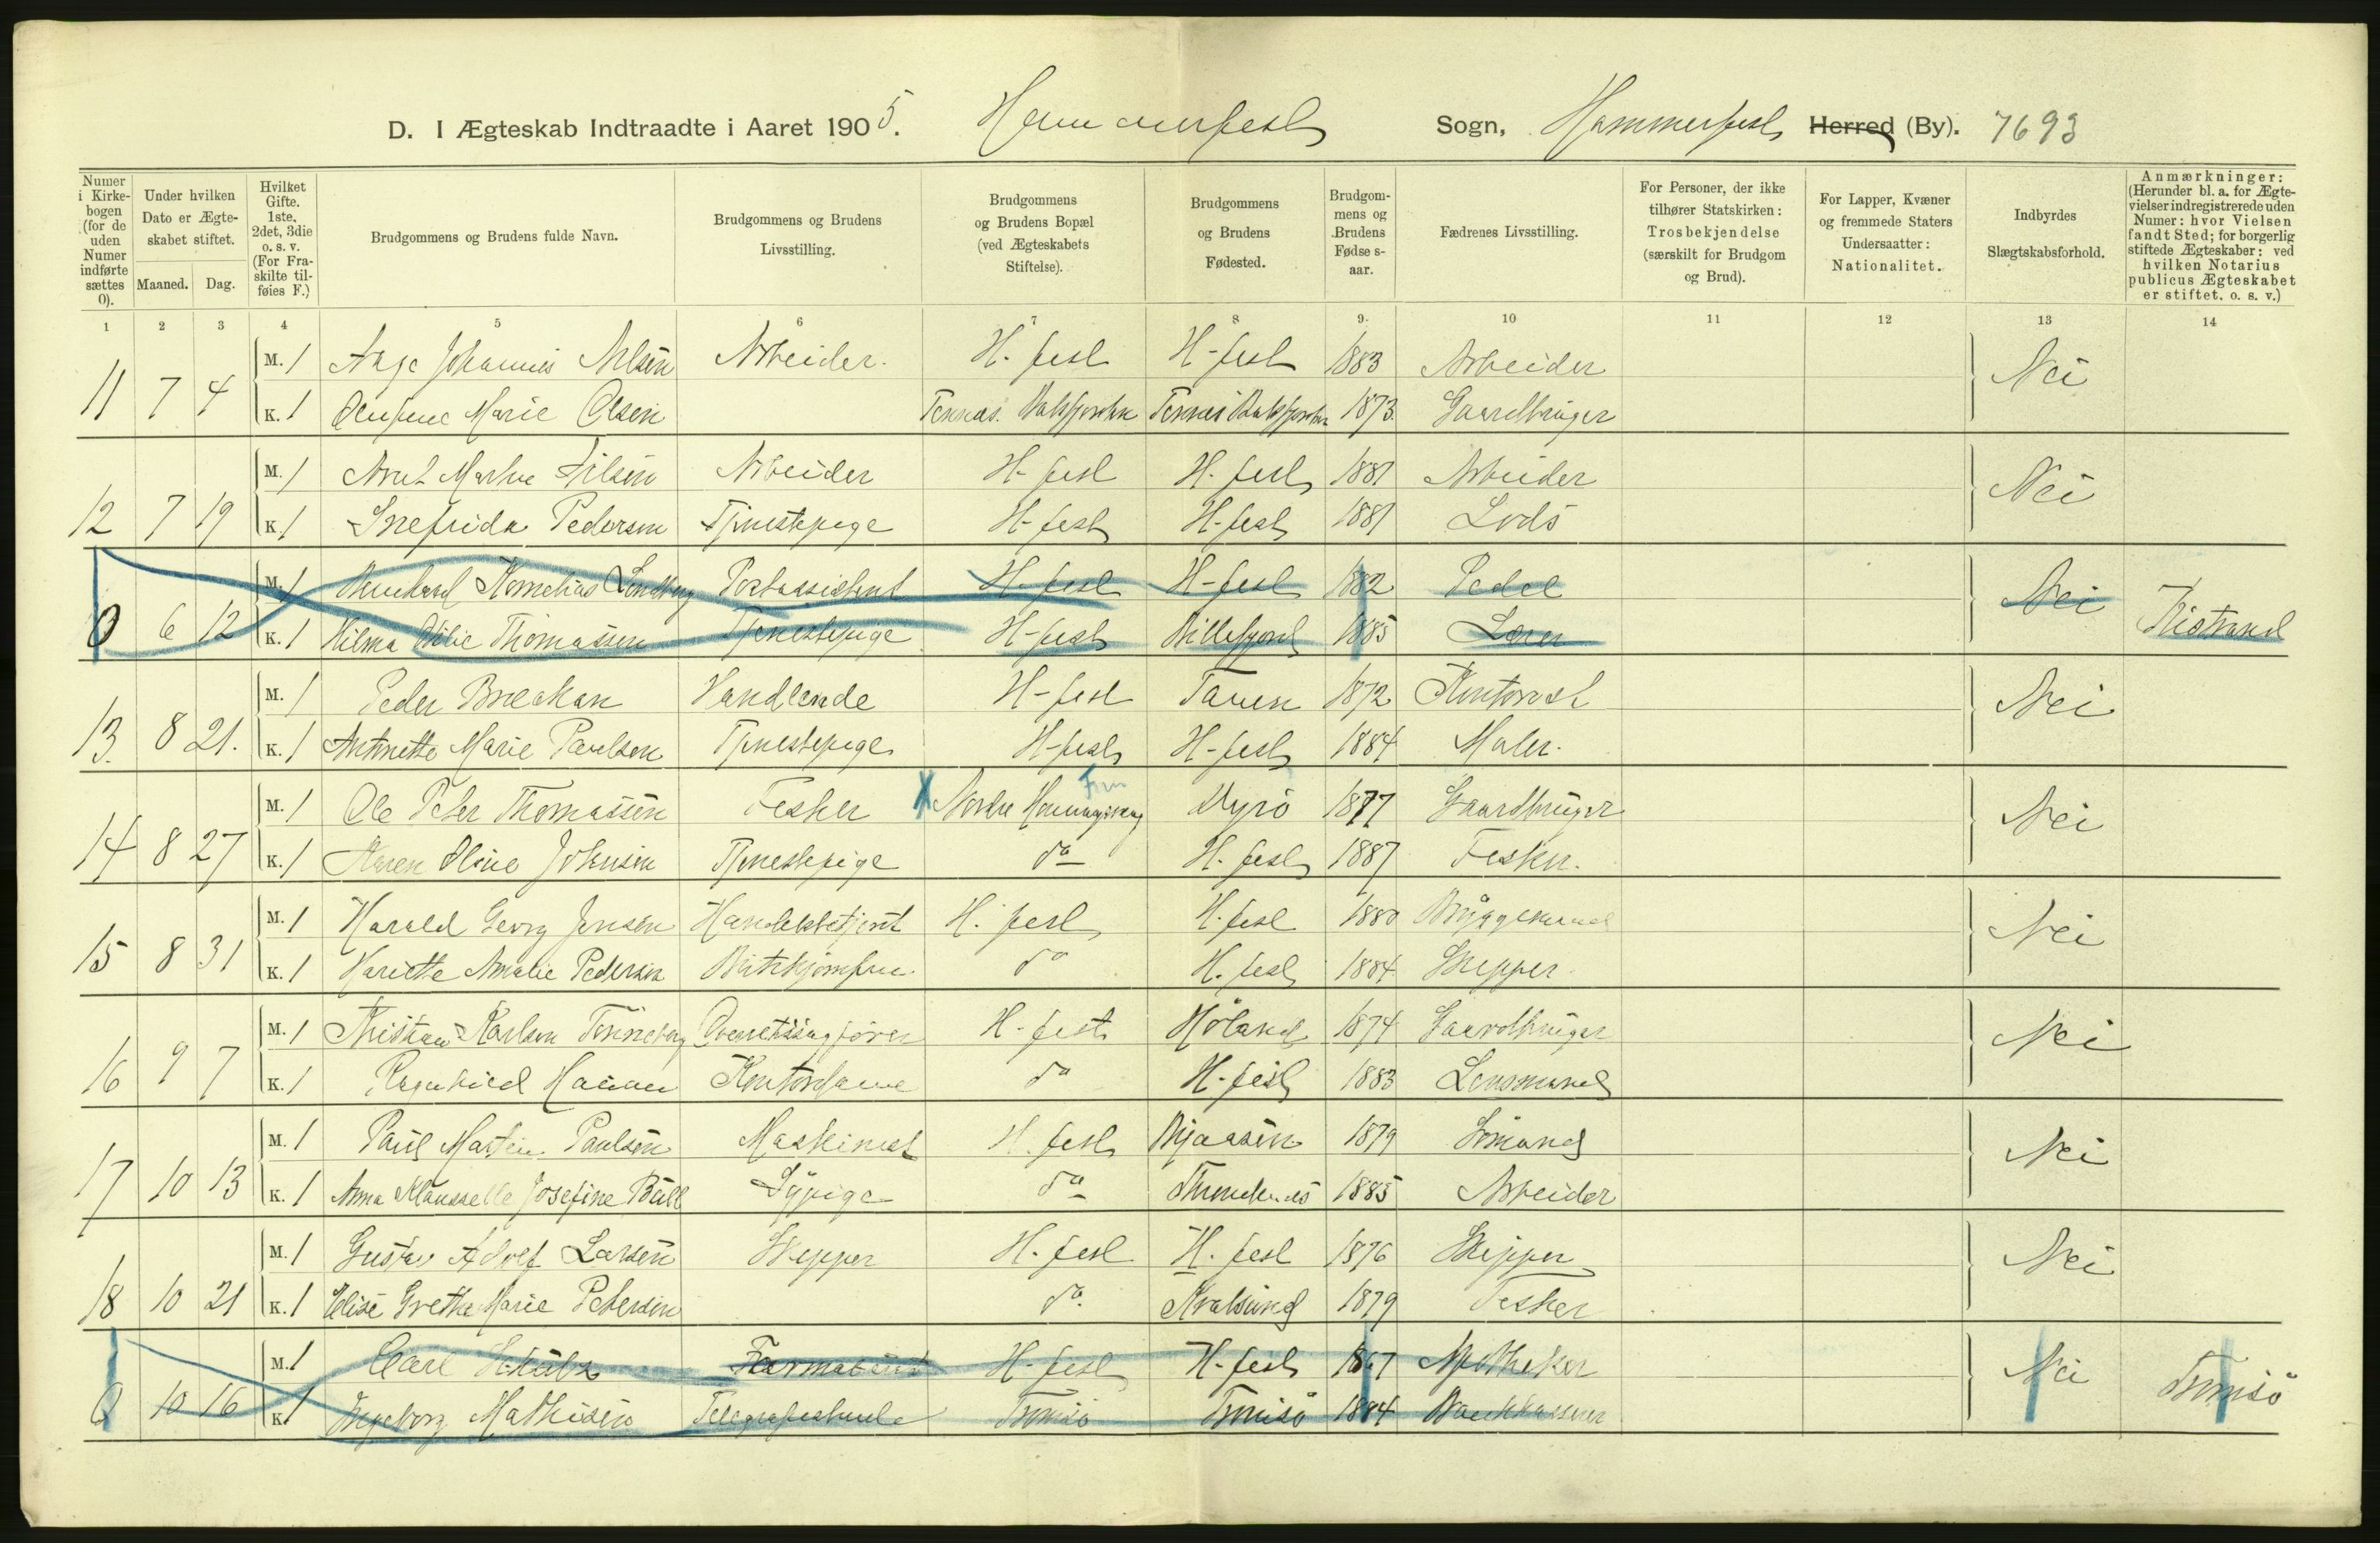 D. I Ægteskab Indtraadte i Aaret 1905. Hammerfest Sogn, Hammerfest Herred (By). 7693
Numer i Kirkebogen (for de uden Numer indførte sættes 0).
Under hvilken Dato er Ægteskabet stiftet.
Maaned. Dag.
Hvilket Gifte. 1ste, 2det, 3die o. s. v. (For Fraskilte tilføies F.)
Brudgommens og Brudens fulde Navn.
Brudgommens og Brudens Livsstilling.
Brudgommens og Brudens Bopæl (ved Ægteskabets Stiftelse).
Brudgommens og Brudens Fødested.
Brudgommens og Brudens Fødselsaar.
Fædrenes Livsstilling.
For Personer, der ikke tilhører Statskirken: Trosbekjendelse (særskilt for Brudgom og Brud).
For Lapper, Kvæner og fremmede Staters Undersaatter: Nationalitet.
Indbyrdes Slægtskabsforhold.
Anmærkninger: (Herunder bl. a. for Ægtevielser indregistrerede uden Numer: hvor Vielsen fandt Sted; for borgerlig stiftede Ægteskaber: ved hvilken Notarius publicus Ægteskabet er stiftet, o. s. v.)
1 2 3 4 5 6 7 8 9. 10 11 12 13 14
M. 1 Aage Johannes Nilsen Arbeider. H-fest H-fest 1883 Arbeider Nei
11 7 4 K. 1 Marie Olsen Tennes. Balsfjorden Tennes Balsfjorden 1873. Gaardbruger
M. 1 Nilsen Arbeider H-fest H-fest 1881 Arbeider Nei
12 7 19 K. 1 Snefrida Pedersen Tjenestepige H-fest H-fest 1881 Lods
M. 1 Kornelius Lindberg Postassistent H-fest H-fest 1882 Pedel Nei
0 6 12 K. 1 Hilma Thomassen Tjenestepige H-fest Billefjord 1885 Lærer Kistrand
M. 1 Peder Breckan Handlende H-fest Tanen 1872 Kontorist Nei
13. 8 21. K. 1 Antonette Marie Paulsen Tjenestepige H-fest H-fest 1884 Maler.
M. 1 Ole Peter Thomassen Fisker X Nordre Honningsvaag Fin Myrö 1877 Gaardbruger Nei
14 8 27 K. 1 Karen Oline Johnsen Tjenestepige do H-fest 1887 Fisker.
M. 1 Harald Georg Jensen Handelsbetjent H-fest H-fest 1880 Bryggemand Nei
15 8 31 K. 1 Hariette Amalie Pedersen Butikjomfru do H-fest 1884 Skipper
M. 1 Kristian Karlsen Tønneberg Overretssagfører H-fest Höland 1874 Gaardbruger Nei
16 9 7 K. 1 Ragnhild Hanan Kontordame do H-fest 1883 Lensmand
M. 1 Paul Martin Paulsen Maskinist H-fest 1879 Sömand Nei
17 10 13 K. 1 Anna Josefine Bull Sypige do Trondenes 1885 Arbeider
M. 1 Gustav Adolf Larsen Skipper H-fest H-fest 1876 Skipper Nei
18 10 21 K. 1 Elise Grethe Marie Petersen do. Kvalsund 1879 Fisker
M. 1 Carl Farmaceut H-fest H-fest 1867 Apotheker Nei Tromsö
0 10 16 K. 1 Ingeborg Mathisen Telegrafistinde Tromsö Tromsö 1884 Bankkasserer